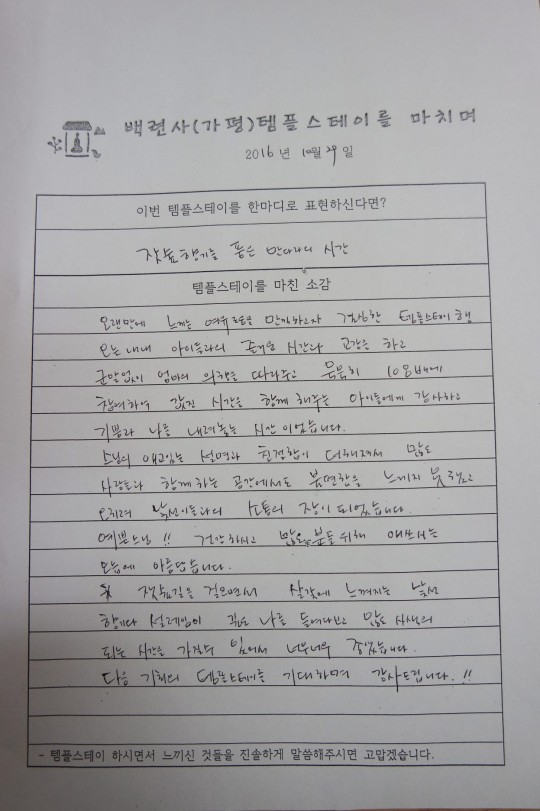 백련사(가평)템플스테이를 마치며
2016년 10월 29일
이번 템플스테이를 한마디로 표현하신다면?
잣숲향기를 품은 만다라의 시간
템플스테이를 마친 소감
오랜만에 느끼는 여유로움을 만끽하고자 결심한 템플스테이행
오는내내 아이들과의 즐거운 시간과 교감을 하고
군말없이 엄마의 의향을 따라주고 묵묵히 108배에
참여하여 값진 시간을 함께 해주는 아이들에게 감사하고
기쁨과 나를 내려놓는 시간이었습니다.
스님의 애교있는 설명과 친절함이 더해져서 많은
사람들과 함께하는 공간에서도 불편함을 느끼지 못했고
오히려 낯선이들과의 소통의 장이 되었습니다.
예쁜스님!! 건강하시고 많은 분들 위해 애쓰시는
모습에 아름답습니다.
잣숲길을 걸으면서 살갗에 느껴지는 낯선
향기와 설레임이 나를 들여다보고 많은
되는 시간을 가질수 있어서 너무너무 좋았습니다.
다음 기회의 템플스테이를 기대하며 감사드립니다.!!
- 템플스테이 하시면서 느끼신 것들을 진솔하게 말씀해주시면 고맙겠습니다.